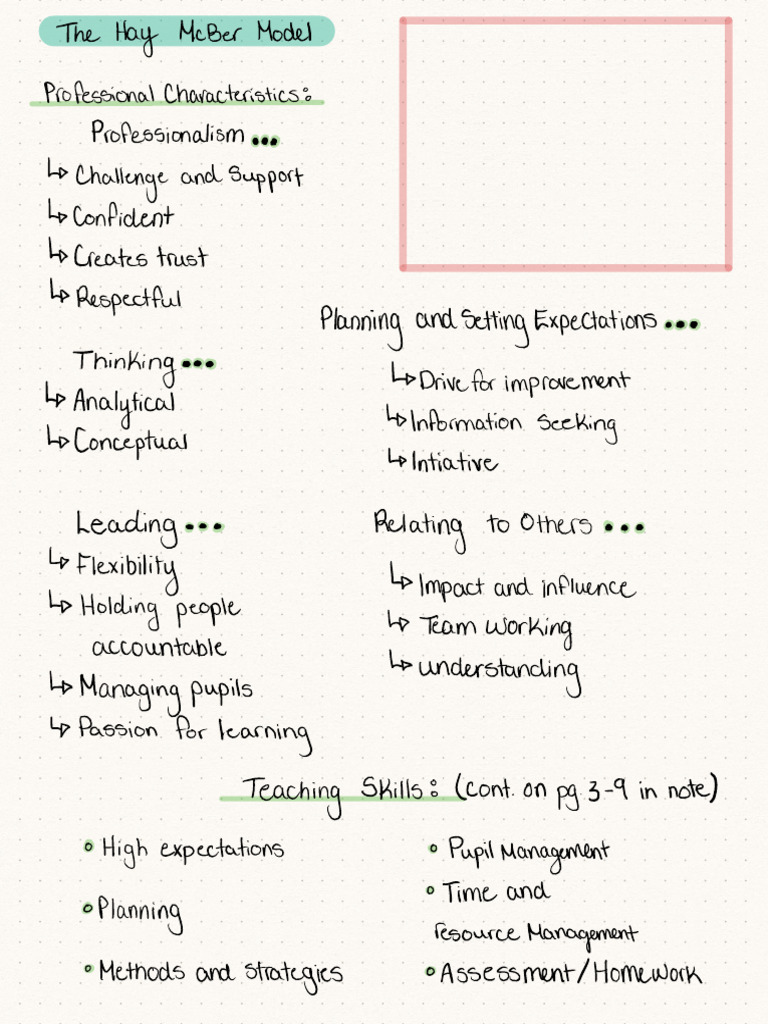 The Hay McBer Model
Professional Characteristics:
Professionalism...
↳ Challenge and Support
↳ Confident
↳ Creates trust
↳ Respectful
Thinking...
↳ Analytical
↳ Conceptual
Planning and Setting Expectations...
↳ Drive for improvement
↳ Information Seeking
↳ Intiative
Leading...
↳ Flexibility
↳ Holding people
accountable
↳ Managing pupils
↳ Passion for learning
Relating to Others...
↳ Impact and influence
↳ Team working
↳ understanding
Teaching Skills: (cont. on pg. 3-9 in note)
• High expectations
• Planning
• Methods and strategies
• Pupil Management
• Time and
resource Management
• Assessment/Homework